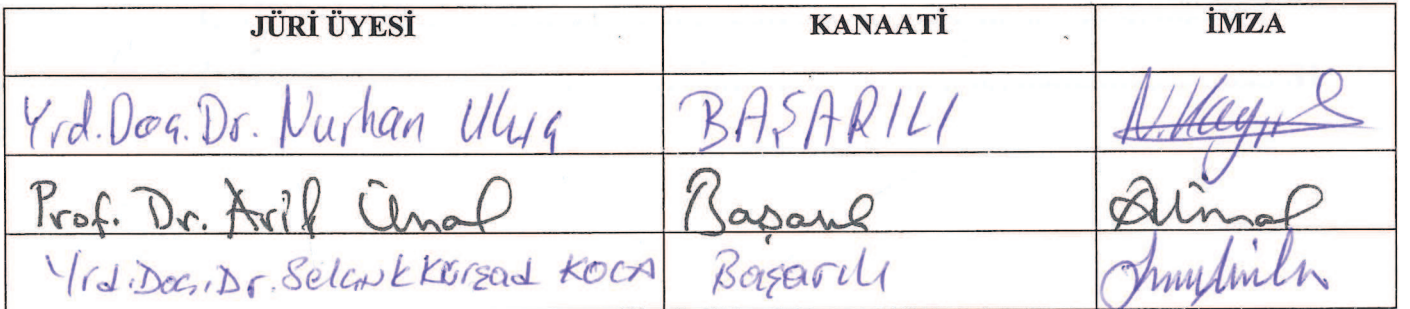 JÜRİ ÜYESİ KANAATİ İMZA
Yrd.Doç.Dr. Nurhan Uluç BAŞARILI
Prof. Dr. Arif Ünal Başarılı
Yrd.Doç.Dr. Selçuk Kürşad KOCA Başarılı